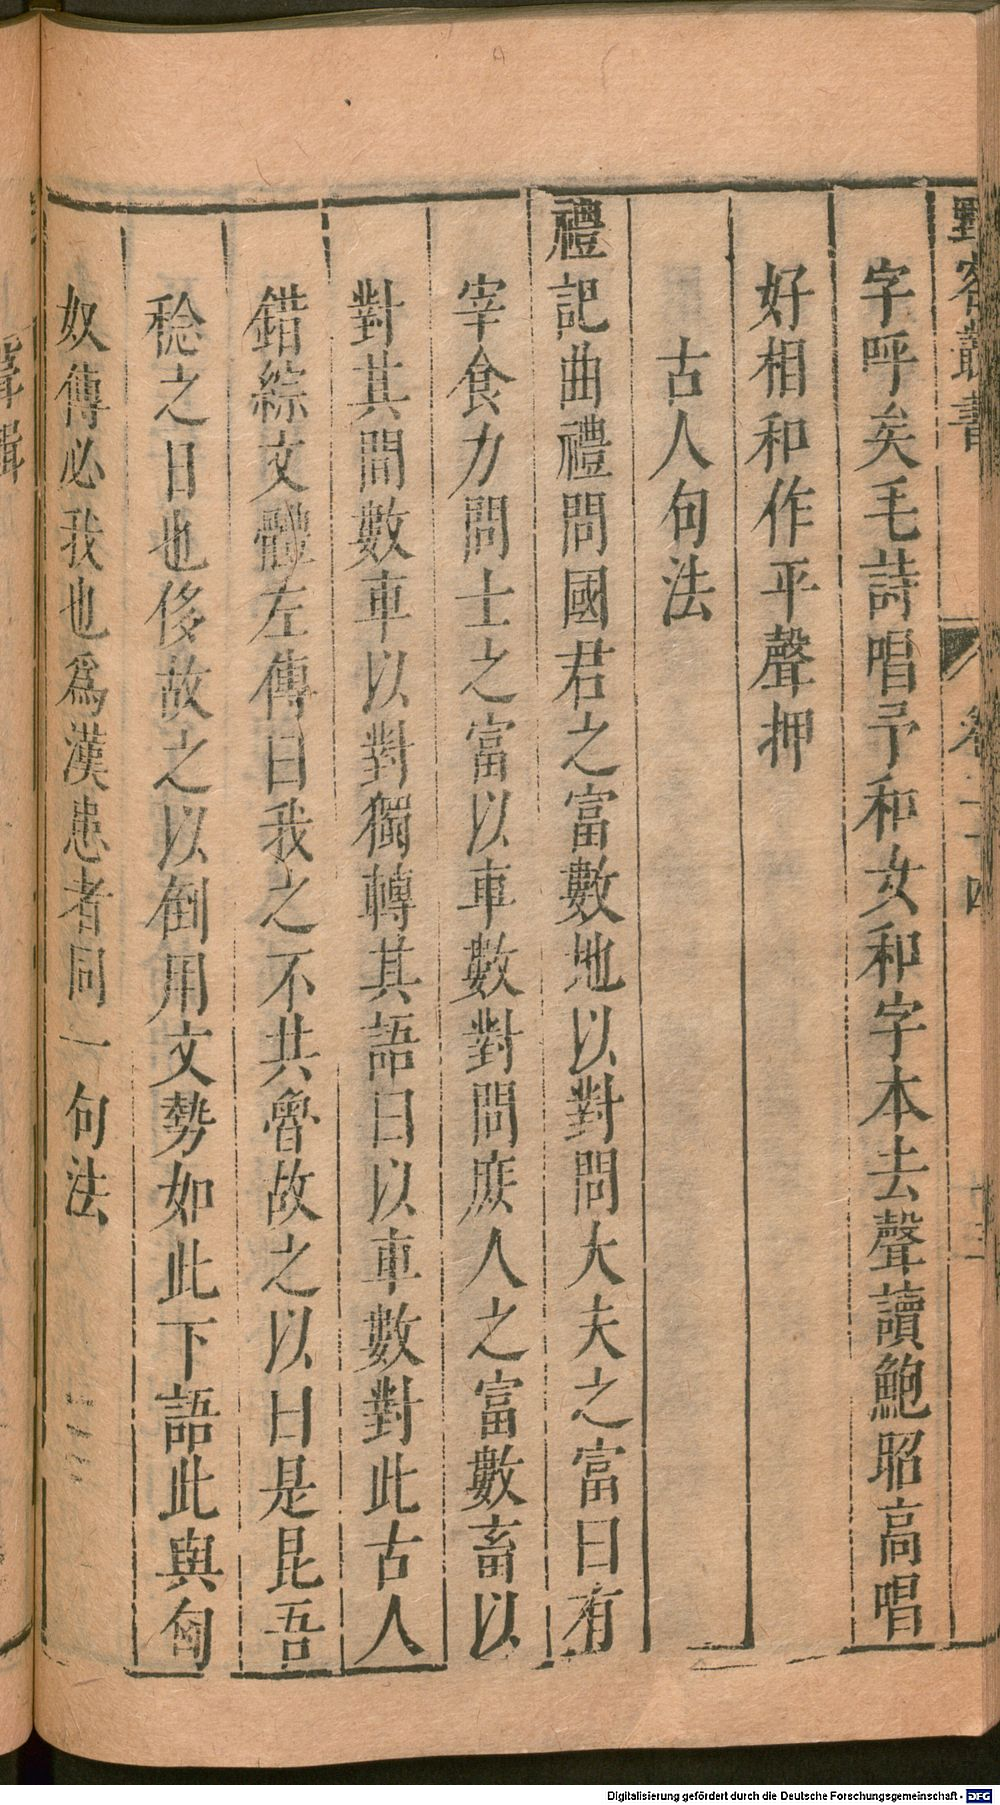 野客叢書 卷二十四 十三
字呼矣毛詩唱予和女和字本去聲讀鮑昭高唱
好相和作平聲押
古人句法
禮記曲禮問國君之富數地以對問大夫之富曰有
宰食力問士之富以車數對問庶人之富數畜以
對其間數車以對獨轉其語曰以車數對此古人
錯綜文體左傳曰我之不共魯故之以曰是昆吾
稔之日也侈故之以倒用文勢如此下語此與匈
奴傳必我也爲漢患者同一句法
Digitalisierung gefördert durch die Deutsche Forschungsgemeinschaft - DFG